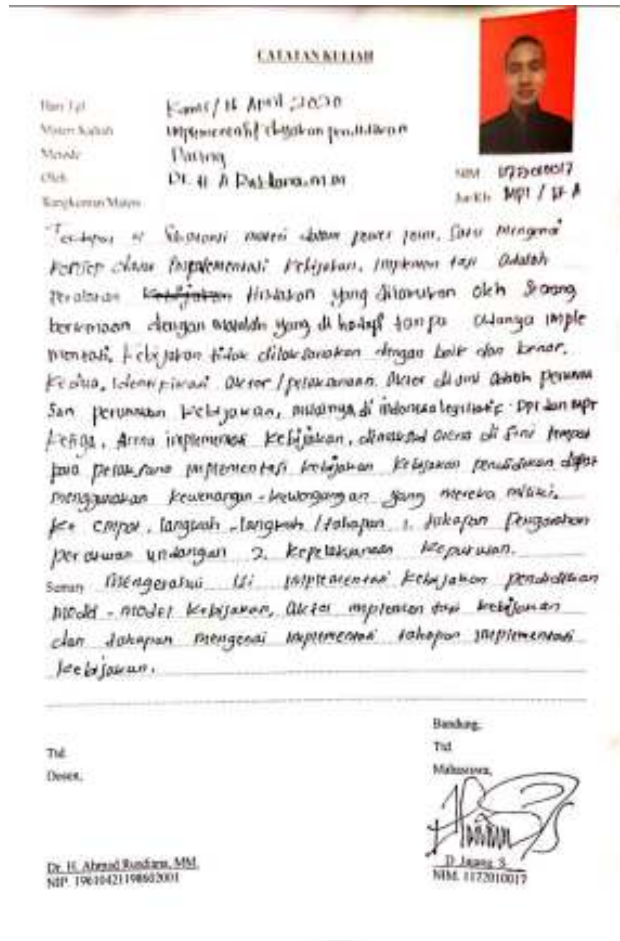 CATATAN KULIAH
Hari/Tgl Kamis / 16 April 2020
Materi Kuliah Implementasi kebijakan pendidikan
Metode Daring
Oleh Dr. H. A Rusdiana, M.M
NIM 1172010017
Jur/Kls MPI / VI A
Rangkuman Materi
Terdapat materi dalam power point, Satu Mengenai
konsep dasar Implementasi Kebijakan, Implemen tasi adalah
Peraturan Kebijakan tindakan yang dilakukan oleh Seorang
berkenaan dengan masalah yang di hadapi tanpa adanya imple
mentasi, kebijakan tidak dilaksanakan dengan baik dan benar.
Kedua, Identifikasi Aktor / pelaksanaan. Aktor di sini adalah perumu
San perumusan kebijakan, misalnya di indonesia legislatif: DPR dan MPR
Ketiga, Arena implementasi kebijakan, dimaksud arena di sini tempat
para pelaksana implementasi kebijakan kebijakan pendidikan dapat
menggunakan kewenangan-kewenangan yang mereka miliki.
Ke empat, langkah-langkah / tahapan 1. tahapan Pengesahan
peraturan undangan 2. kepelaksanaan keputusan.
Saran Mengetahui isi implementasi kebijakan pendidikan
model-model kebijakan, aktor implemen tasi kebijakan
dan tahapan mengenai implementasi tahapan implementasi
kebijakan.
Bandung,
Ttd Ttd
Dosen, Mahasiswa,
Dr. H. Ahmad Rusdiana, MM. D. Jajang S.
NIP. 196104211986021001 NIM. 1172010017